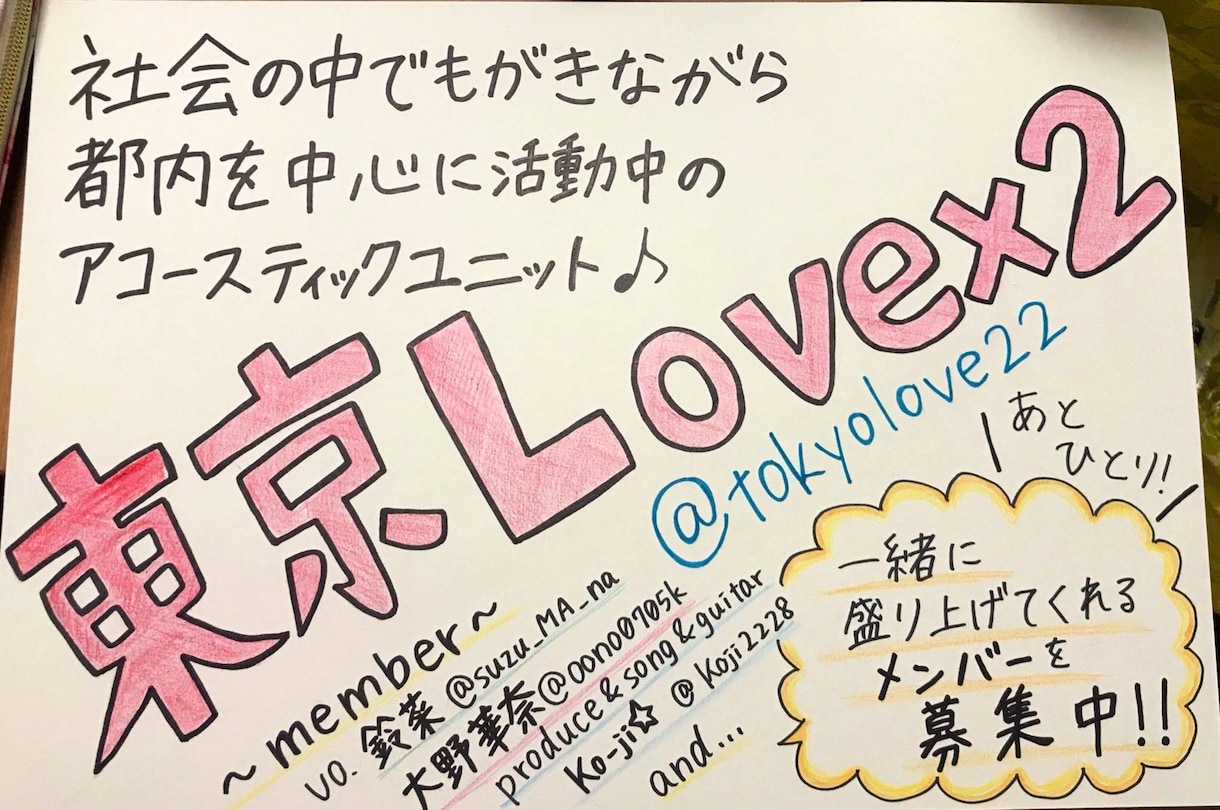 社会の中でもがきながら
都内を中心に活動中の
アコースティックユニット♪
東京Lovex2
@tokyolove22
~member~
vo. 鈴菜 @suzu_MA_na
大野華奈@oono0705k
produce & song & guitar
Ko-ji☆ @Koji2228
and...
あと
ひとり!
一緒に
盛り上げてくれる
メンバーを
募集中!!